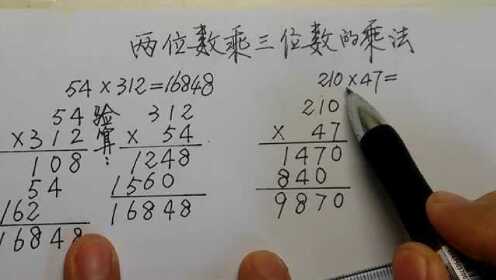 两位数乘三位数的乘法
54×312=16848
54
×312
108
54
162
16848
验算:
312
×54
1248
1560
16848
210×47=
210
×47
1470
840
9870